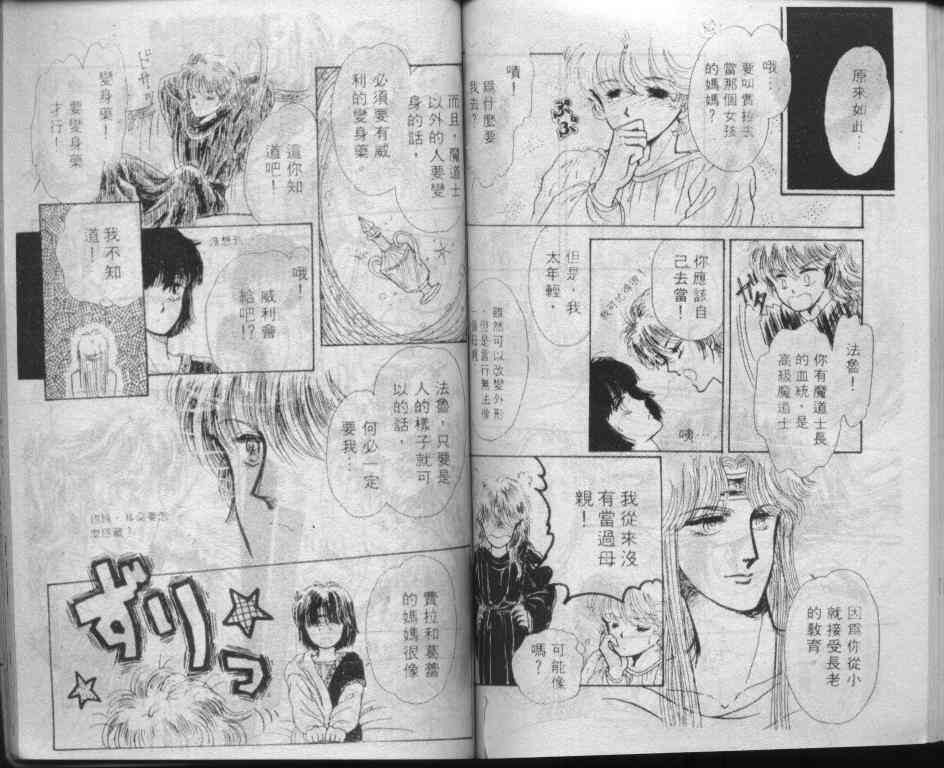 原來如此…
哦…
要叫費拉去
當那個女孩
的媽媽?
嘖!
爲什麼要
我去?
ぷぷ
ガタ
法魯!
你有魔道士長
的血統,是
高級魔道士
你應該自
己去當!
咦…
但是,我
太年輕,
雖然可以改變外形
,但是當行無法像
因爲你從小
就接受長老
的教育。
我從來沒
有當過母
親!
可能像
嗎?
而且,魔道士
以外的人要變
身的話,
必須要有威
利的變身藥。
這你知
道吧!
變身藥!
要變身藥
才行!
哦!
威利會
給吧!?
沒想到
我不知
道!
法魯,只要是
人的樣子就可
以的話,
何必一定
要我…
費拉和葛蕾
的媽媽很像
ずりっ